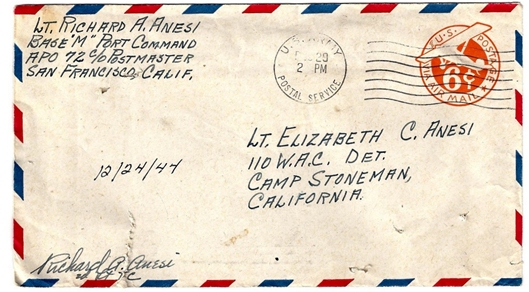 Lt. Richard A. Anesi
Base "M" Port Command
APO 72 c/o Postmaster
San Francisco, Calif,
U.S. 
29
2 PM
POSTAL SERVICE
U.S. POSTAGE
6¢
VIA AIR MAIL
Lt. Elizabeth C. Anesi
110 W.A.C. Det.
Camp Stoneman,
California.
12/24/44
Richard A. Anesi